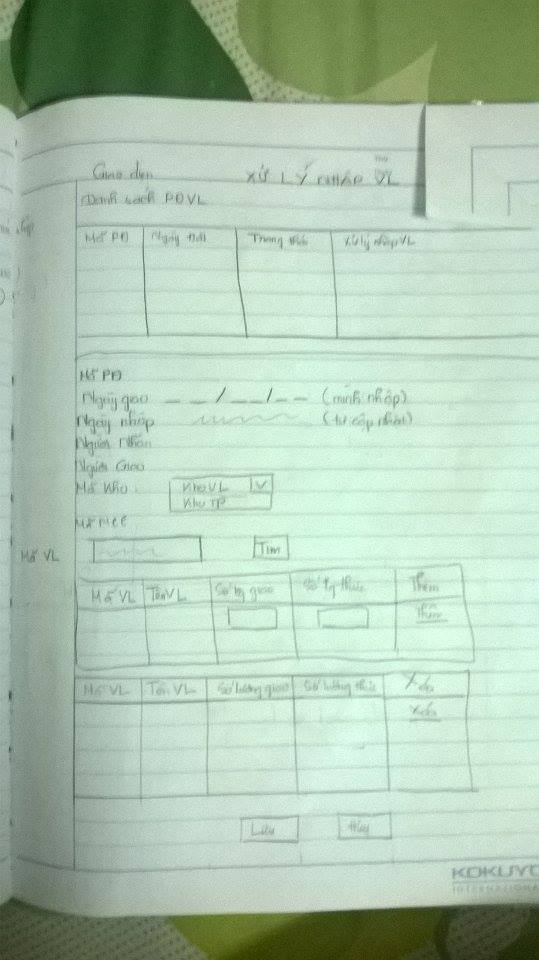 Giao diện XỬ LÝ NHẬP VL
Danh sách PĐVL
Mã PĐ Ngày Đặt Trạng thái Xử lý nhập VL
Mã PĐ
Ngày giao _ _ / _ _ / _ _ (mình nhập)
Ngày nhập (tự cập nhật)
Người Nhận
Người Giao
Mã Kho Kho VL V
Kho TP
Mã NCC
Mã VL Tìm
Mã VL Tên VL Số lg giao Số lg thực Thêm
Thêm
Mã VL Tên VL Số lượng giao Số lượng thực Xóa
Xóa
Lưu Hủy
KOKUYO
INTERNATIONAL